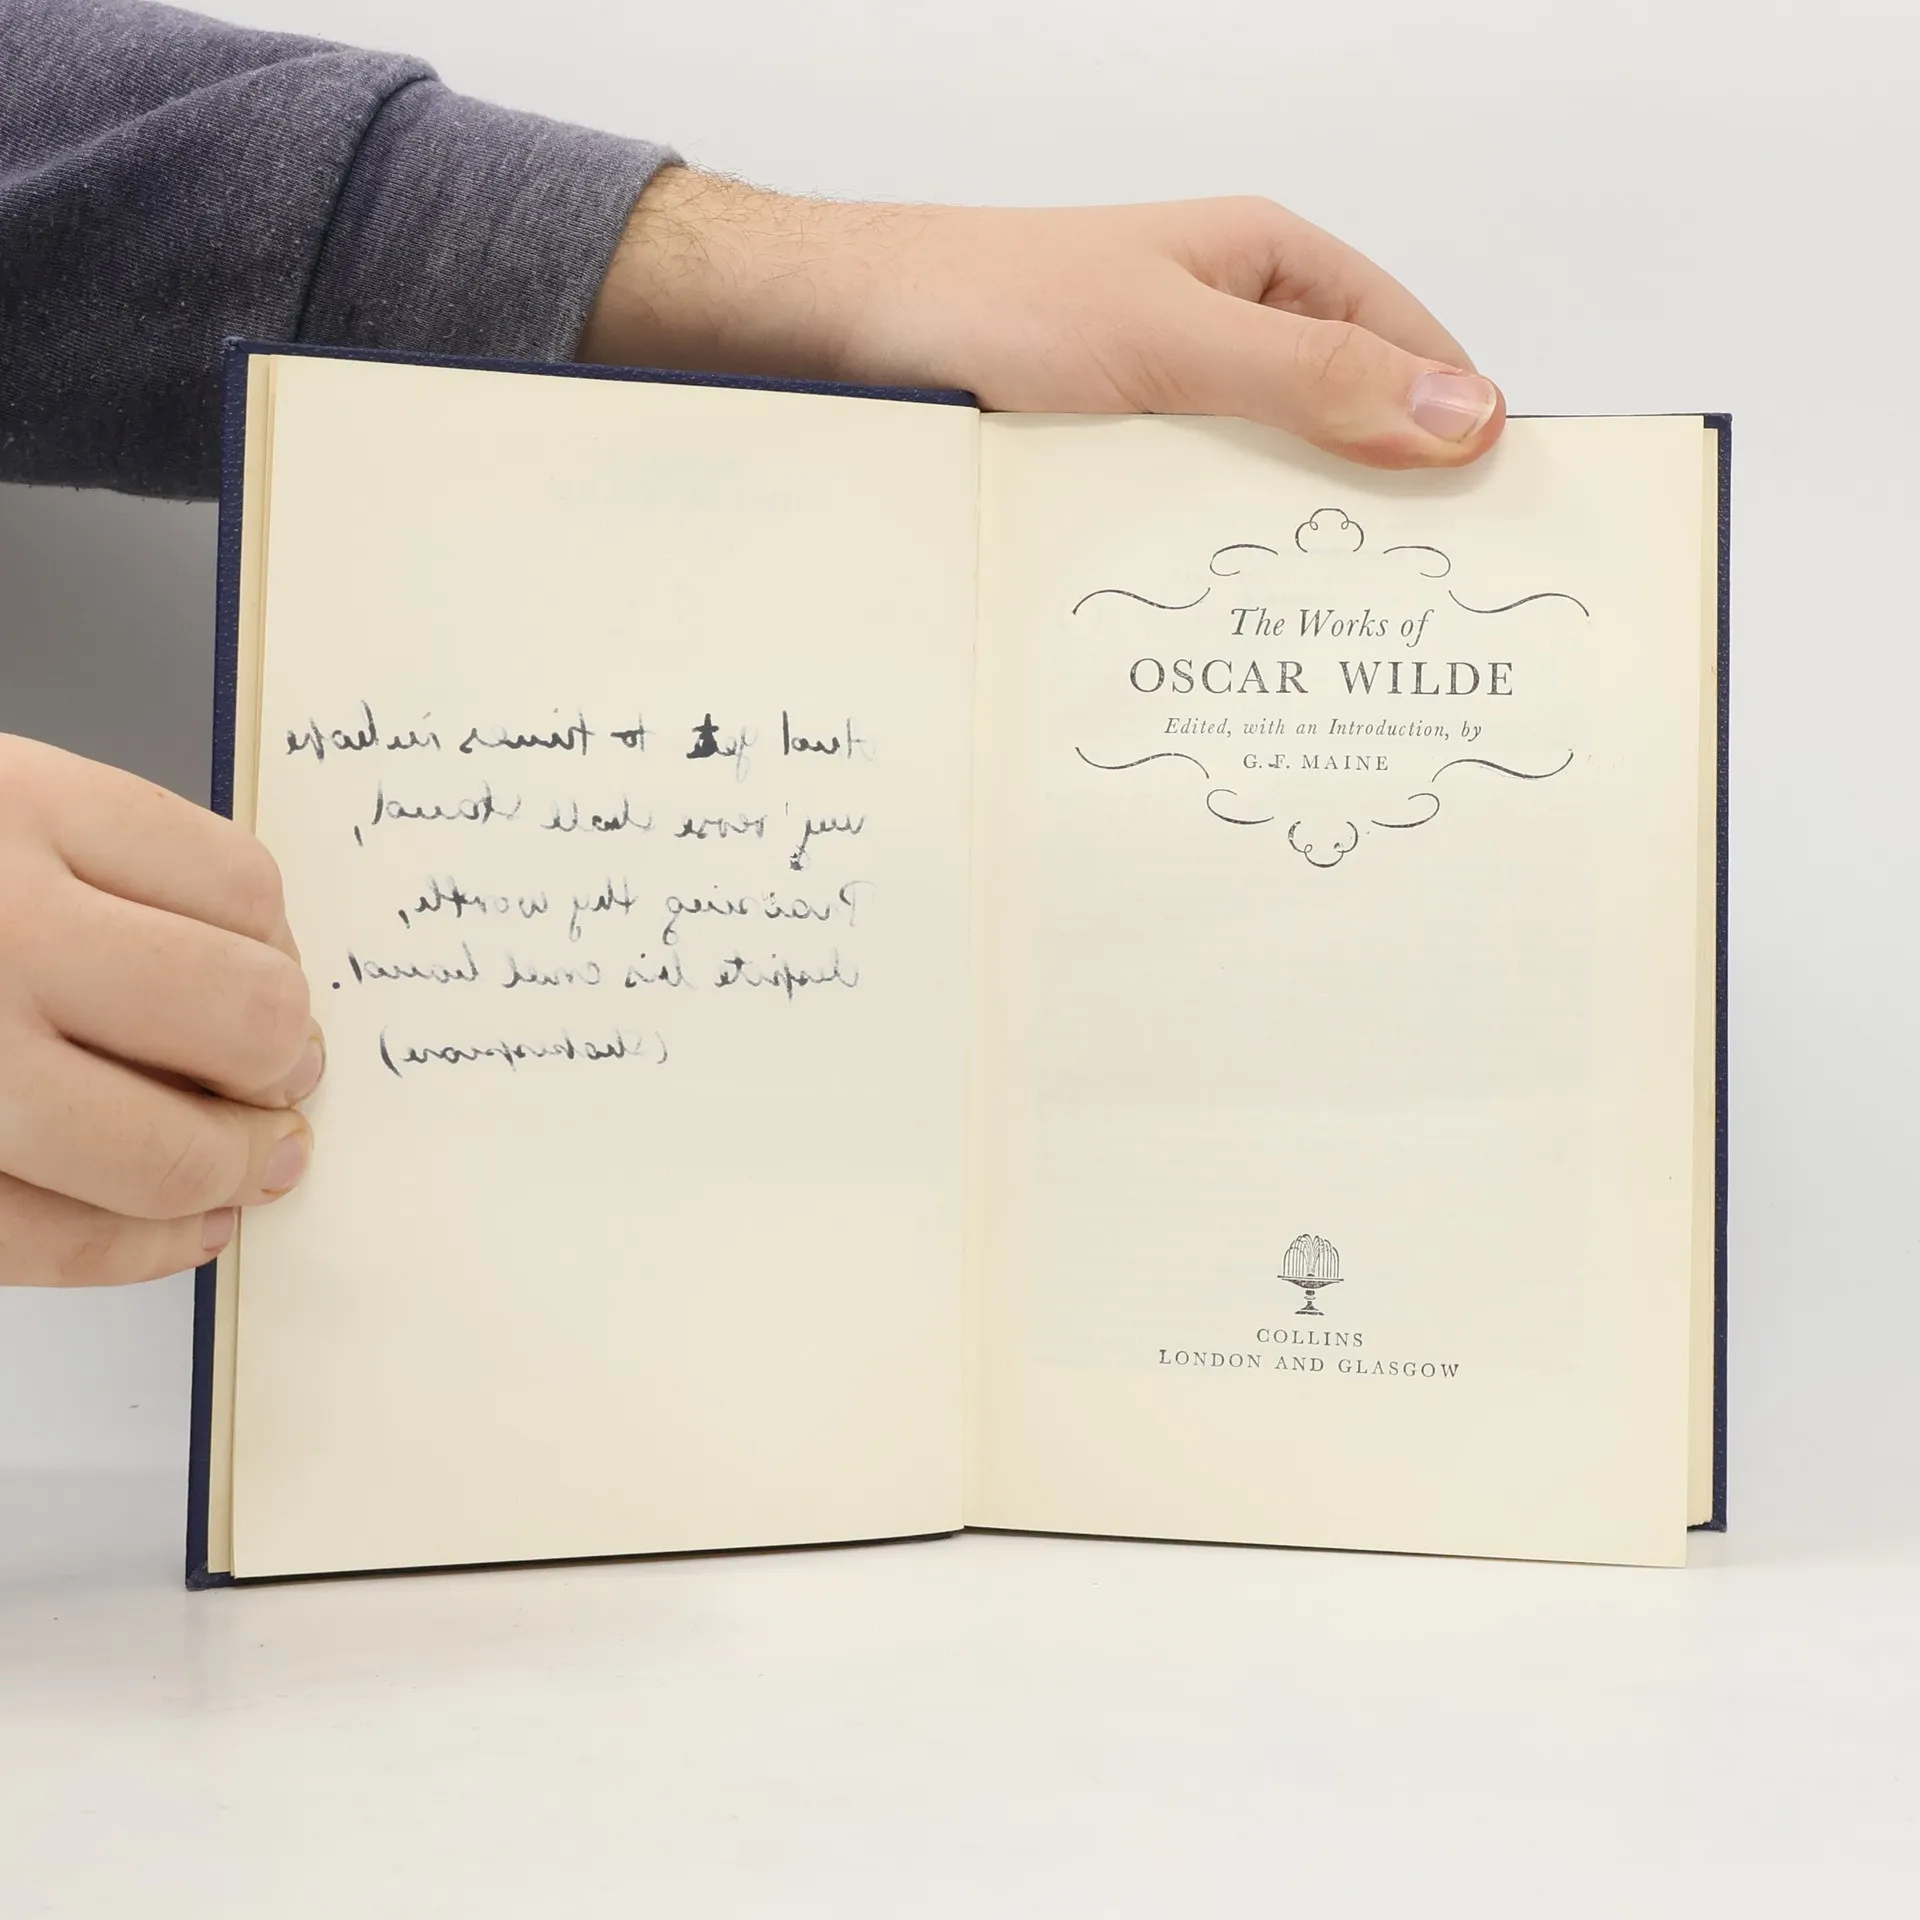 And yet to times in hope
my verse shall stand,
Praising thy worth,
despite his cruel hand.
(Shakespeare)
The Works of
OSCAR WILDE
Edited, with an Introduction, by
G. F. MAINE
COLLINS
LONDON AND GLASGOW